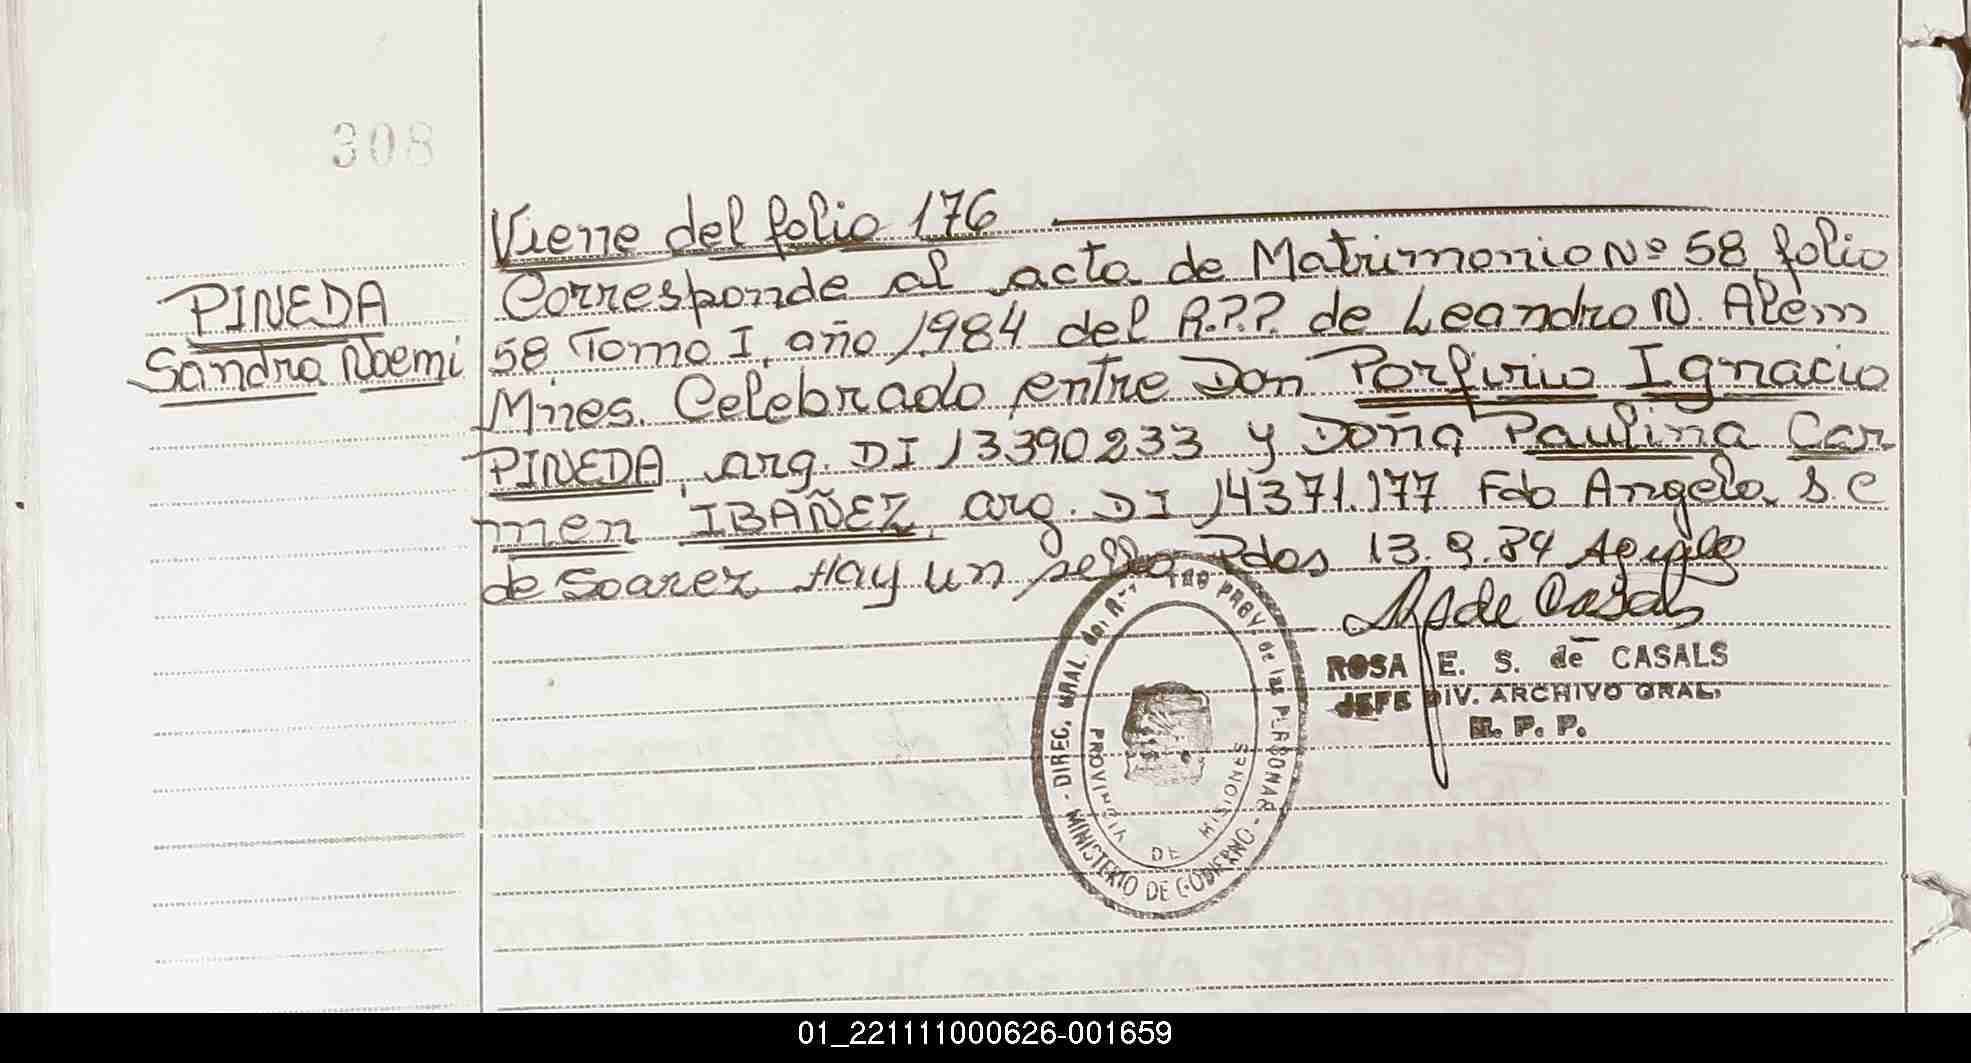 308
Viene del folio 176
PINEDA
Sandra Noemi
Corresponde al acta de Matrimonio Nº 58 folio
58 Tomo I, año 1984 del R.P.P. de Leandro N. Alem
Mnes. Celebrado entre Don Porfirio Ignacio
PINEDA, arg. DI 13390233 y Doña Paulina Car
men IBAÑEZ, arg. DI 14371.177 Fdo Angela S. C
de Soarez Hay un sello Pdas 13.9.84
ROSA E. S. de CASALS
JEFE DIV. ARCHIVO GRAL.
R. P. P.
DIREC. GRAL. del PROV. de las PERSONAS
MINISTERIO DE GOBIERNO
PROVINCIA DE MISIONES
01_221111000626-001659